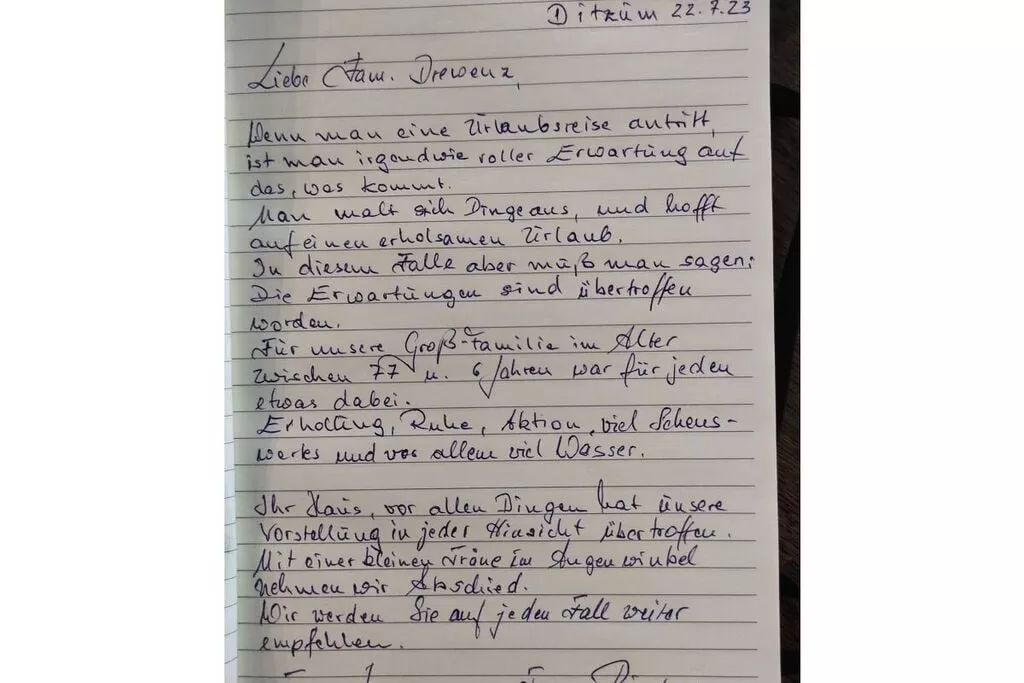 Ditzum 22.7.23
Liebe Fam. Drewenz,
Wenn man eine Urlaubsreise antritt,
ist man irgendwie voller Erwartung auf
das, was kommt.
Man malt sich Dinge aus, und hofft
auf einen erholsamen Urlaub.
In diesem Falle aber muß man sagen:
Die Erwartungen sind übertroffen
worden.
Für unsere Groß-Familie im Alter
zwischen 77 u. 6 Jahren war für jeden
etwas dabei.
Erholung, Ruhe, Aktion, viel Sehens-
wertes und vor allem viel Wasser.
Ihr Haus, vor allen Dingen hat unsere
Vorstellung in jeder Hinsicht übertroffen.
Mit einer kleinen Träne im Augenwinkel
nehmen wir Abschied.
Wir werden Sie auf jeden Fall weiter
empfehlen.